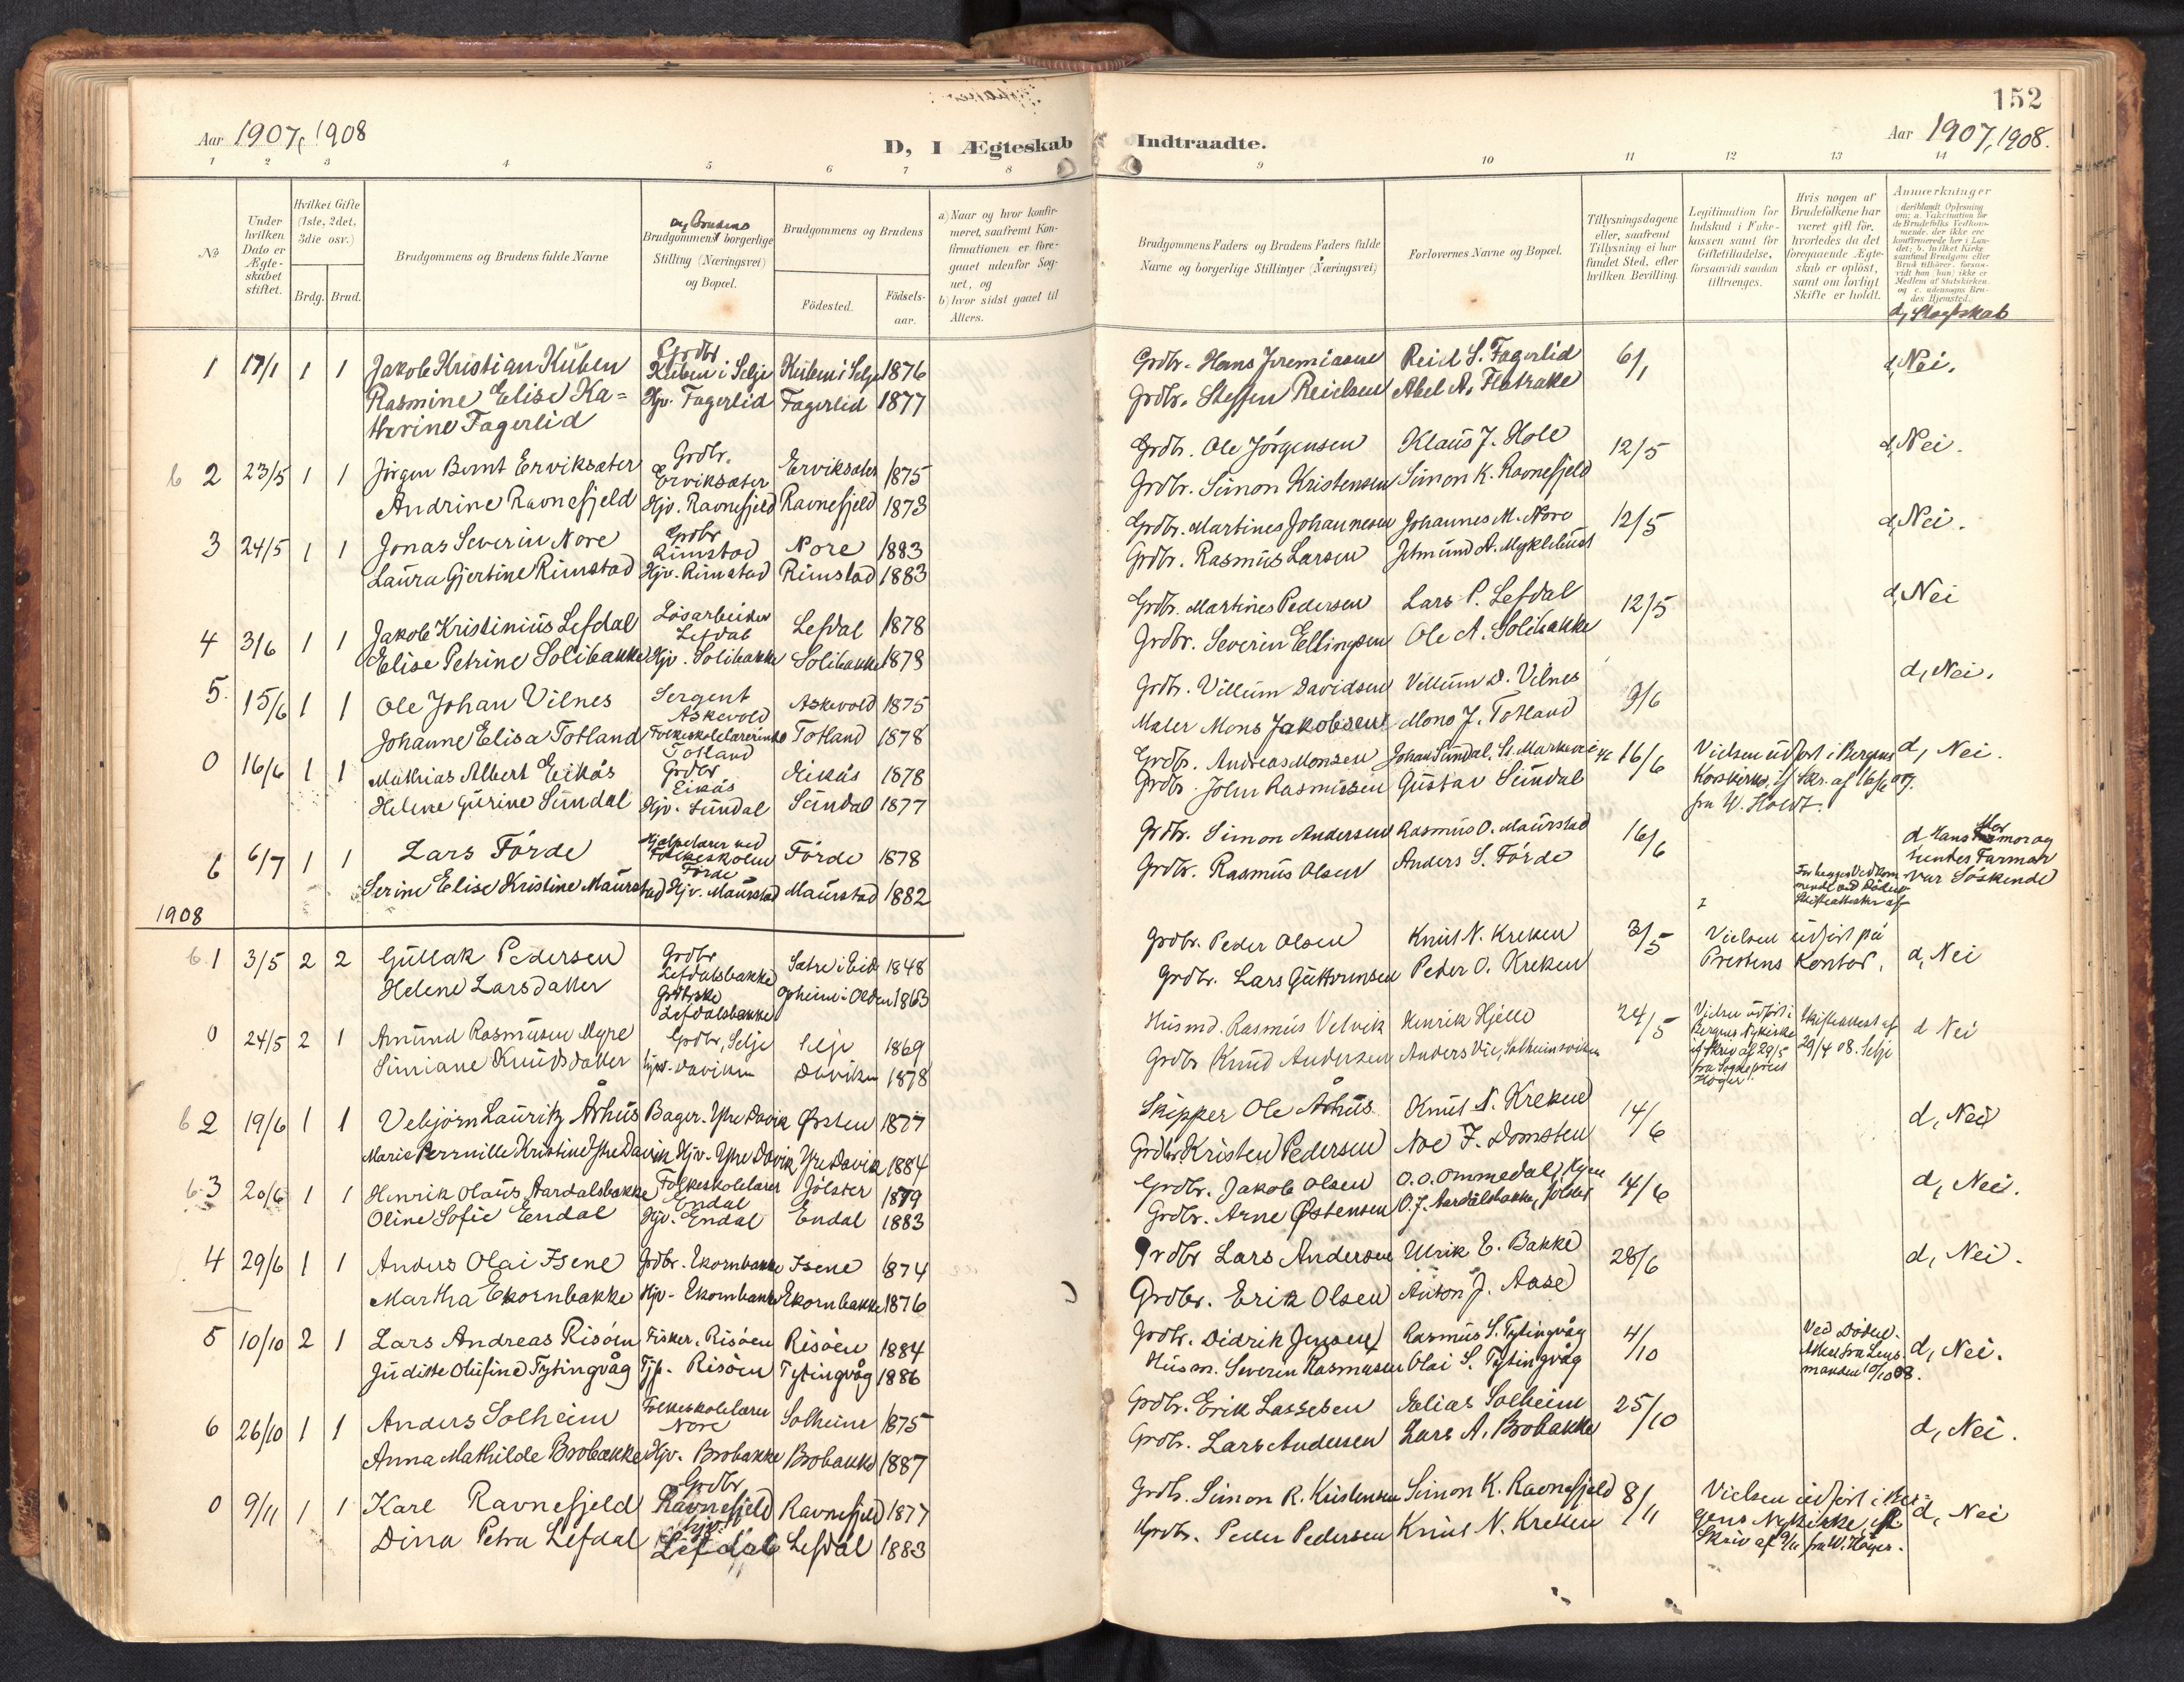 Aar 1907, 1908
D, I Ægteskab
Indtraadte.
152
Aar 1907, 1908.
1 2 3 4 5 6 7 8 9 10 11 12 13 14
№
Under hvilken Dato er Ægteskabet stiftet.
Hvilket Gifte (1ste, 2det, 3die osv.)
Brdg. Brud.
Brudgommens og Brudens fulde Navne
og Brudens
Brudgommens borgerlige Stilling (Næringsvei) og Bopæl.
Brudgommens og Brudens
Födested.
Födsels-aar.
a) Naar og hvor konfirmeret, saafremt Konfirmationen er foregaaet udenfor Sognet, og
b) hvor sidst gaaet til Alters.
Brudgommens Faders og Brudens Faders fulde Navne og borgerlige Stillinger (Næringsvei)
Forlovernes Navne og Bopæl.
Tillysningsdagene eller, saafremt Tillysning ei har fundet Sted, efter hvilken Bevilling.
Legitimation for Indskud i Enkekassen samt for Giftetilladelse, forsaavidt saadan tiltrænges.
Hvis nogen af Brudefolkene har været gift för, hvorledes da det foregaaende Ægteskab er oplöst, samt om lovligt Skifte er holdt.
Anmærkninger
(deriblandt Oplysning om: a. Vakcination for de Brudefolks Vedkommende, der ikke ere konfirmerede her i Landet; b. hvilket Kirkesamfund Brudgom eller Brud tilhörer, forsaavidt han (hun) ikke er Medlem af Statskirken, og c. udensogns Brudes Hjemsted.
d, Slægtskab
1 17/1 1 1 Jakob Kristian Kuben Grdbr Kuben i Selje Kuben i Selje 1876 Grdbr. Hans Jeremiasen Reid S. Fagerlid 6/1 d, Nei.
Rasmine Elise Ka= Hjv. Fagerlid Fagerlid 1877 Grdbr. Steffen Reidsen Abel A. Flatrake
therine Fagerlid
6 2 23/5 1 1 Jörgen Bernt Erviksæter Grdbr. Erviksæter Erviksæter 1875 Grdbr. Ole Jörgensen Klaus J. Hole 12/5 d, Nei.
Andrine Ravnefjeld Hjv. Ravnefjeld Ravnefjeld 1873 Grdbr. Simon Kristensen Simon K. Ravnefjeld
3 24/5 1 1 Jonas Severin Nore Grdbr Rimstad Nore 1883 Grdbr. Martines Johannesen Johannes M. Nore 12/5 d, Nei.
Laura Gjertine Rimstad Hjv. Rimstad Rimstad 1883 Grdbr. Rasmus Larsen Jetmund A. Myklebust
4 3/6 1 1 Jakob Kristinius Lefdal Lösarbeider Lefdal Lefdal 1878 Grdbr. Martines Pedersen Lars P. Lefdal 12/5 d, Nei
Elise Petrine Solibakke Hjv. Solibakke Solibakke 1879 Grdbr. Severin Ellingsen Ole A. Solibakke
5. 15/6 1 1 Ole Johan Vilnes Sergent Askevold Askevold 1875 Grdbr. Villum Davidsen Villum D. Vilnes 9/6 d, Nei.
Johanne Elisa Totland Folkeskolelærerinde Totland Totland 1878 Maler Mons Jakobsen Mons J. Totland
0 16/6 1 1 Mathias Albert Eikås Grdbr Eikås Eikås 1878 Grdbr. Andreas Monsen Johan Sundal, St. Markevei 16/6 Vielsen udfört i Bergens d, Nei.
Helene Gurine Sundal Hjv. Sundal Sundal 1877 Grdbr. John Rasmussen Gustav Sundal Korskirke, if Skr. af 16/6 07.
fra W. Holdt.
6 6/7 1 1 Lars Förde Hjelpelærer ved Folkeskolen Förde Förde 1878 Grdbr. Simon Andersen Rasmus O. Maurstad 16/6 d Hans Mormor og
Serine Elise Kristine Maurstad Hjv. Maurstad Maurstad 1882 Grdbr. Rasmus Olsen Anders S. Förde hendes Farmor
var Söskende
1908
6. 1 3/5 2 2 Gullak Pedersen Grdbr Lefdalsbakke Sætre i Eid 1848 Grdbr. Peder Olsen Knut N. Kreken 3/5 Vielsen udfört på For begges Vedkommende ved Döden Skifteattester af d, Nei
Helene Larsdatter Grdbrske Lefdalsbakke Opheim i Olden 1863 Grdbr. Lars Guttormsen Peder O. Kreken Prestens Kontor.
0 24/5 2 1 Amund Rasmusen Myre Grdbr, Selje Selje 1869 Husmd. Rasmus Velvik Henrik Hjelle 24/5 Vielsen udfört i Bergens Nykirke if Skriv af 29/5 fra Sogneprest Höyer Skifteattest af 29/4 08. Selje d Nei
Simiane Knudsdatter Hjv. Daviken Daviken 1878 Grdbr Knud Andersen Anders Vie, Solheimsviken
6 2 19/6 1 1 Vebjörn Lauritz Århus Bager. Ytre Davik Örsten 1877 Skipper Ole Århus Knut N. Kreken 14/6 d, Nei
Marie Pernille Kristine Ytre Davik Hjv. Ytre Davik Ytre Davik 1884 Grdbr Kristen Pedersen Noe F. Domsten
6. 3 20/6 1 1 Henrik Olaus Aardalsbakke Folkeskolelærer Endal Jölster 1879 Grdbr. Jakob Olsen O. O. Ommedal, Hyen 14/6 d, Nei.
Oline Sofie Endal Hjv. Endal Endal 1883 Grdbr. Arne Östensen O. J. Aardalsbakke, Jölster
4 29/6 1 1 Anders Olai Isene Grdbr. Ekornbakke Isene 1874 Grdbr Lars Andersen Ulrik E. Bakke 28/6 d, Nei.
Martha Ekornbakke Hjv. Ekornbakke Ekornbakke 1876 Grdbr. Erik Olsen Anton J. Aase
5 10/10 2 1 Lars Andreas Risöen Fisker. Risöen Risöen 1884 Grdbr. Didrik Jensen Rasmus S. Tytingvåg 4/10 Ved Döden. Attest fra Lensmanden 10/10 08. d, Nei.
Juditte Olufine Tytingvåg Tjp. Risöen Tytingvåg 1886 Husm. Severin Rasmusen Olai S. Tytingvåg
6 26/10 1 1 Anders Solheim Folkeskolelærer Nore Solheim 1875 Grdbr. Erik Lassesen Elias Solheim 25/10 d, Nei.
Anna Mathilde Brobakke Hjv. Brobakke Brobakke 1887 Grdbr. Lars Andersen Lars A. Brobakke
0 9/11 1 1 Karl Ravnefjeld Grdbr Ravnefjeld Ravnefjeld 1877 Grdbr. Simon R. Kristensen Simon K. Ravnefjeld 8/11 Vielsen udfört i Ber= d, Nei
Dina Petra Lefdal Hjv. Lefdal Lefdal 1883 Grdbr. Peder Pedersen Knut N. Kreken gens Nykirke, if
Skriv af 9/11 fra W. Höyer.